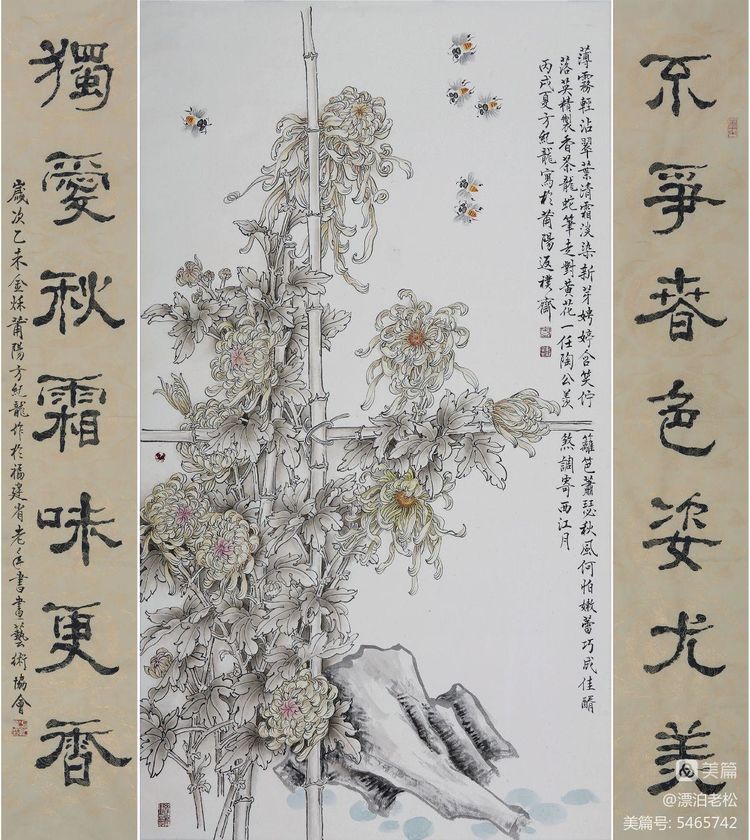 不爭春色姿尤美
薄霧輕沾翠葉清霜淡染新芽娉婷含笑佇籬笆蕭瑟秋風何怕嫩蕾巧成佳醑
落英精製香茶龍蛇筆走對黃花一任陶公羨煞調寄西江月
丙戌夏方紀龍寫於莆陽返樸齋
獨愛秋霜味更香
歲次乙未金秌莆陽方紀龍作於福建省老年書畫藝術協會
美篇
@漂泊老松
美篇号: 5465742